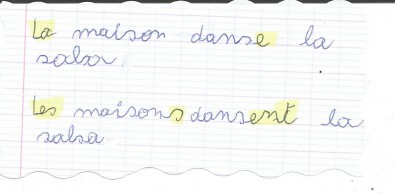 La maison danse la
salsa.
Les maisons dansent la
salsa